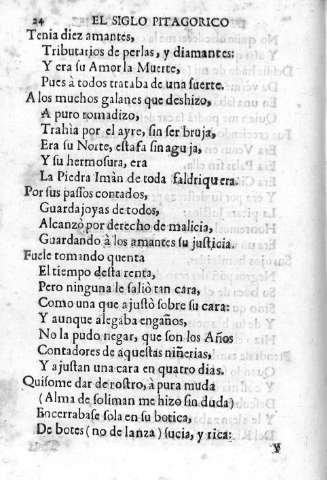 24 EL SIGLO PITAGORICO
Tenia diez amantes,
Tributarios de perlas, y diamantes:
Y era su Amor la Muerte,
Pues à todos trataba de una suerte.
A los muchos galanes que deshizo,
A puro romadizo,
Trahia por el ayre, sin ser bruja,
Era su Norte, estafa sin aguja,
Y su hermosura, era
La Piedra Imàn de toda faldriquera.
Por sus passos contados,
Guardajoyas de todos,
Alcanzò por derecho de malicia,
Guardando à los amantes su justicia.
Fuele tomando quenta
El tiempo desta renta,
Pero ninguna le saliò tan cara,
Como una que ajustò sobre su cara:
Y aunque alegaba engaños,
No la pudo negar, que son los Años
Contadores de aquestas niñerias,
Y ajustan una cara en quatro dias.
Quisome dar de rostro, à pura muda
(Alma de soliman me hizo sin duda)
Encerrabase sola en su botica,
De botes (no de lanza) sucia, y rica:
Y